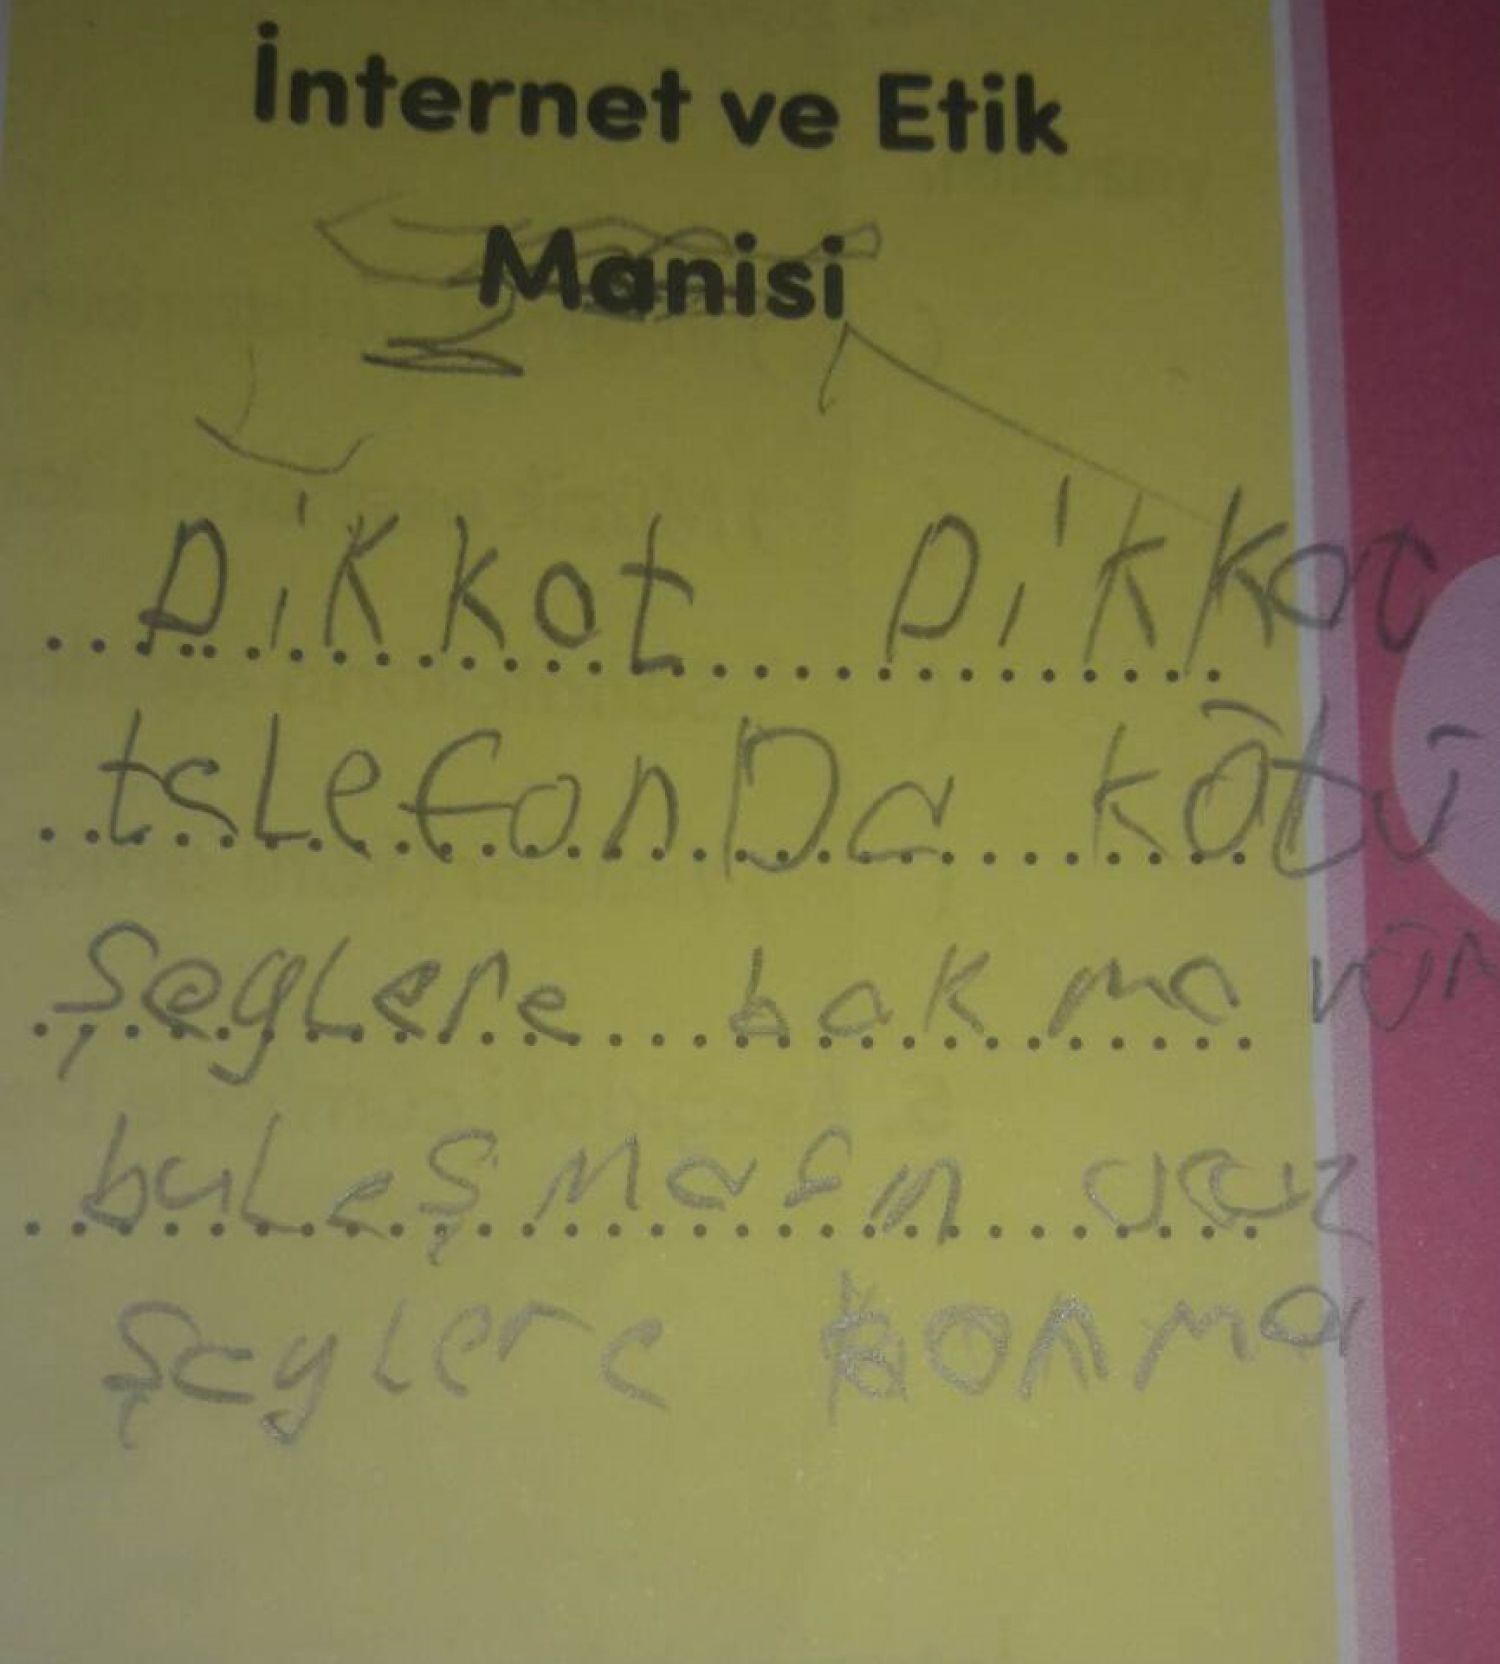 İnternet ve Etik
Manisi
Dikkat Dikkat
telefonDa kötü
şeylere bakma vür
buLeşmasın
şeylere konma